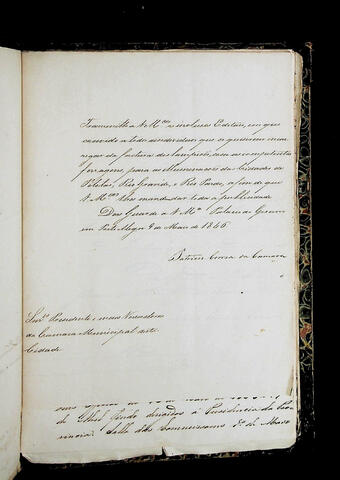 Transmitto a V. M.ces os inclusos Editaes, em que
convido a todos aos que se quiserem encar
regar da factura dos lampiões, com as competentes
ferragens, para a illuminação das Cidades de
Pelotas, Rio Grande, e Rio Pardo, a fim de que
V. M.ces lhes mandem dar toda a publicidade
Deos Guarde a V. M.ces Palacio do Governo
em Porto Alegre 9 de Maio de 1846
Patricio Correa da Camara
Snr.es Presidente e mais Vereadores
da Camara Municipal desta
Cidade
de dirigidos à Presidencia da Pro
vincia. Salla das Commissoens